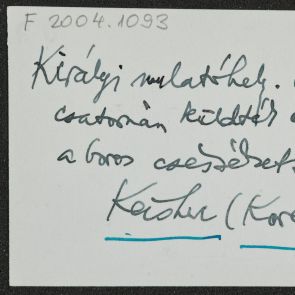 F 2004.1093
Királyi mulatóhely.
csatornán küldték
a boros csészéket
(Kore